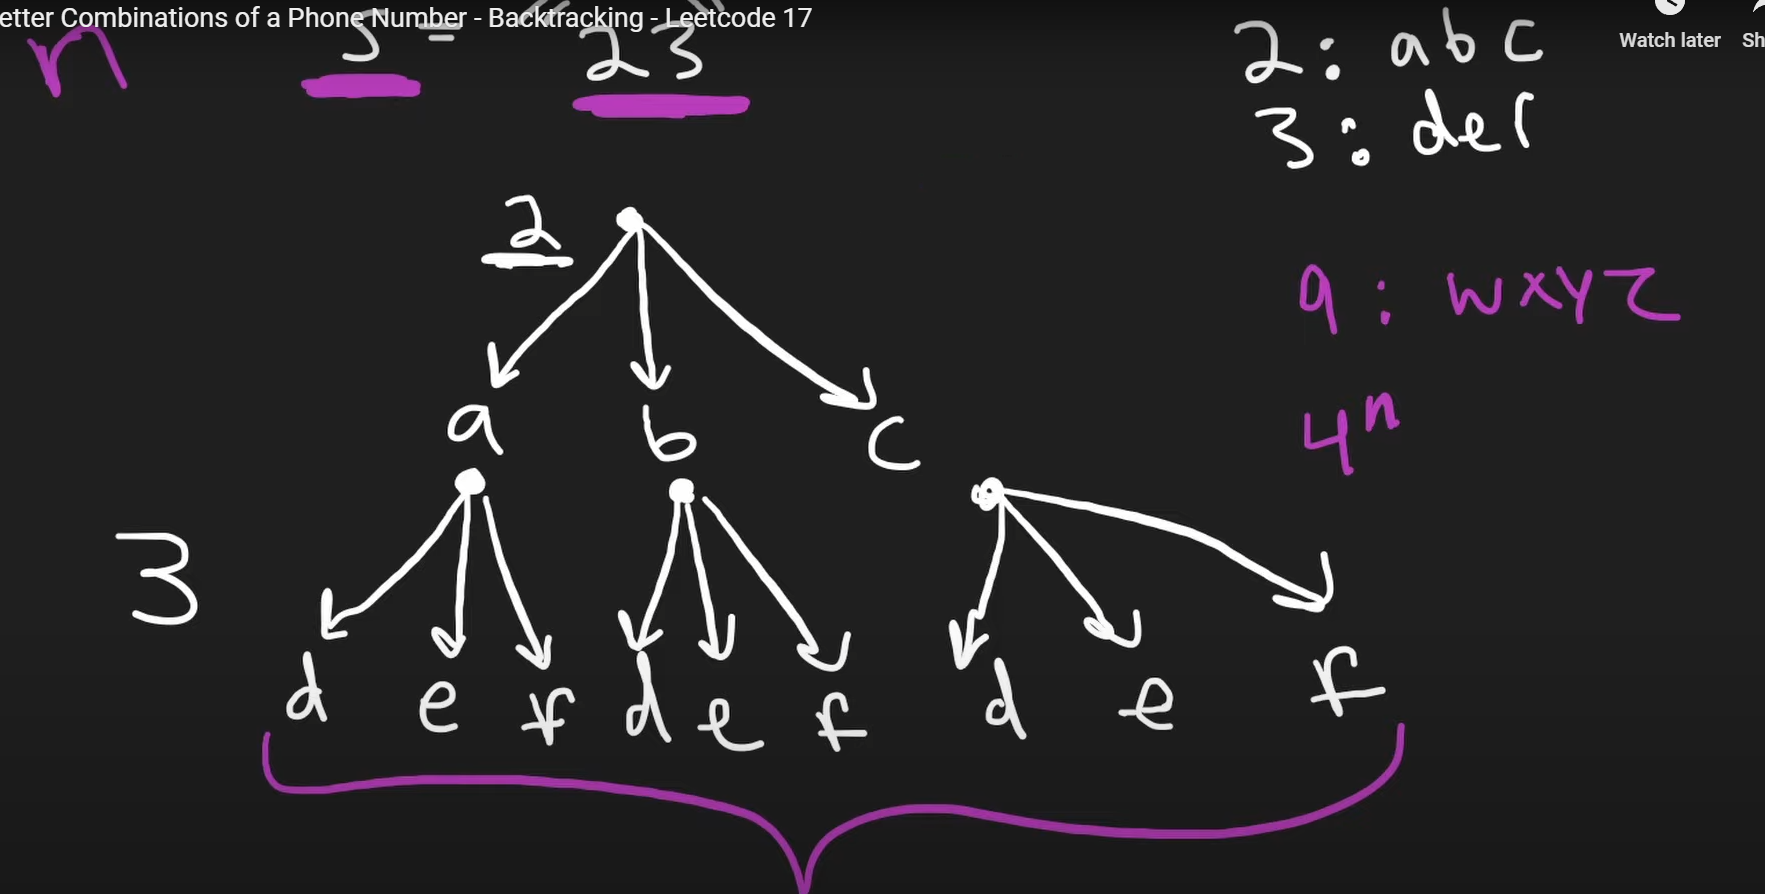 etter Combinations of a Phone Number - Backtracking - Leetcode 17
Watch later Sh
n s = "23"
2: abc
3: def
2
9: wxyz
a b c
4^n
3
d e f d e f d e f